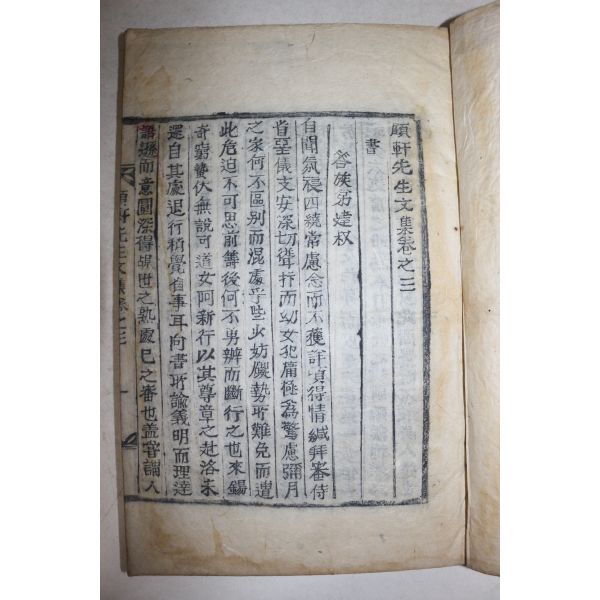 頤軒先生文集卷之三
書
答族弟建权
自聞氛祲四繞常慮念而不獲詳頃得情緘拜審侍
省堇儀支安深切聳抃而幼女犯痛極爲驚慮彌月
之家何不區別而混處乎些少妨礙勢所難免而遭
此危迫不可思前筭後何不勇辦而斷行之也來錫
奇窮蟄伏無說可道女阿新行以其尊章之赴洛未
還自其處退行稍覺省事耳向書所諭義明而理達
語遜而意圓深得與世之熟處己之審也盖容謂人
頤軒先生文集卷之三 一